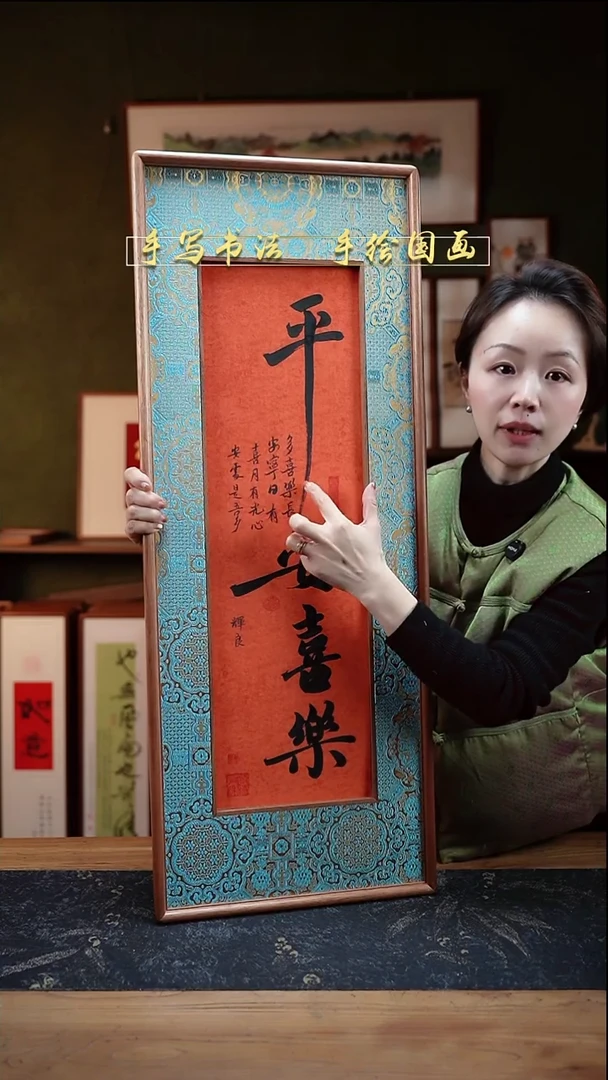 手写书法 手绘国画
平安喜樂
多喜樂長
安寧日有
喜月有光心
安處是吾乡
輝良
如意